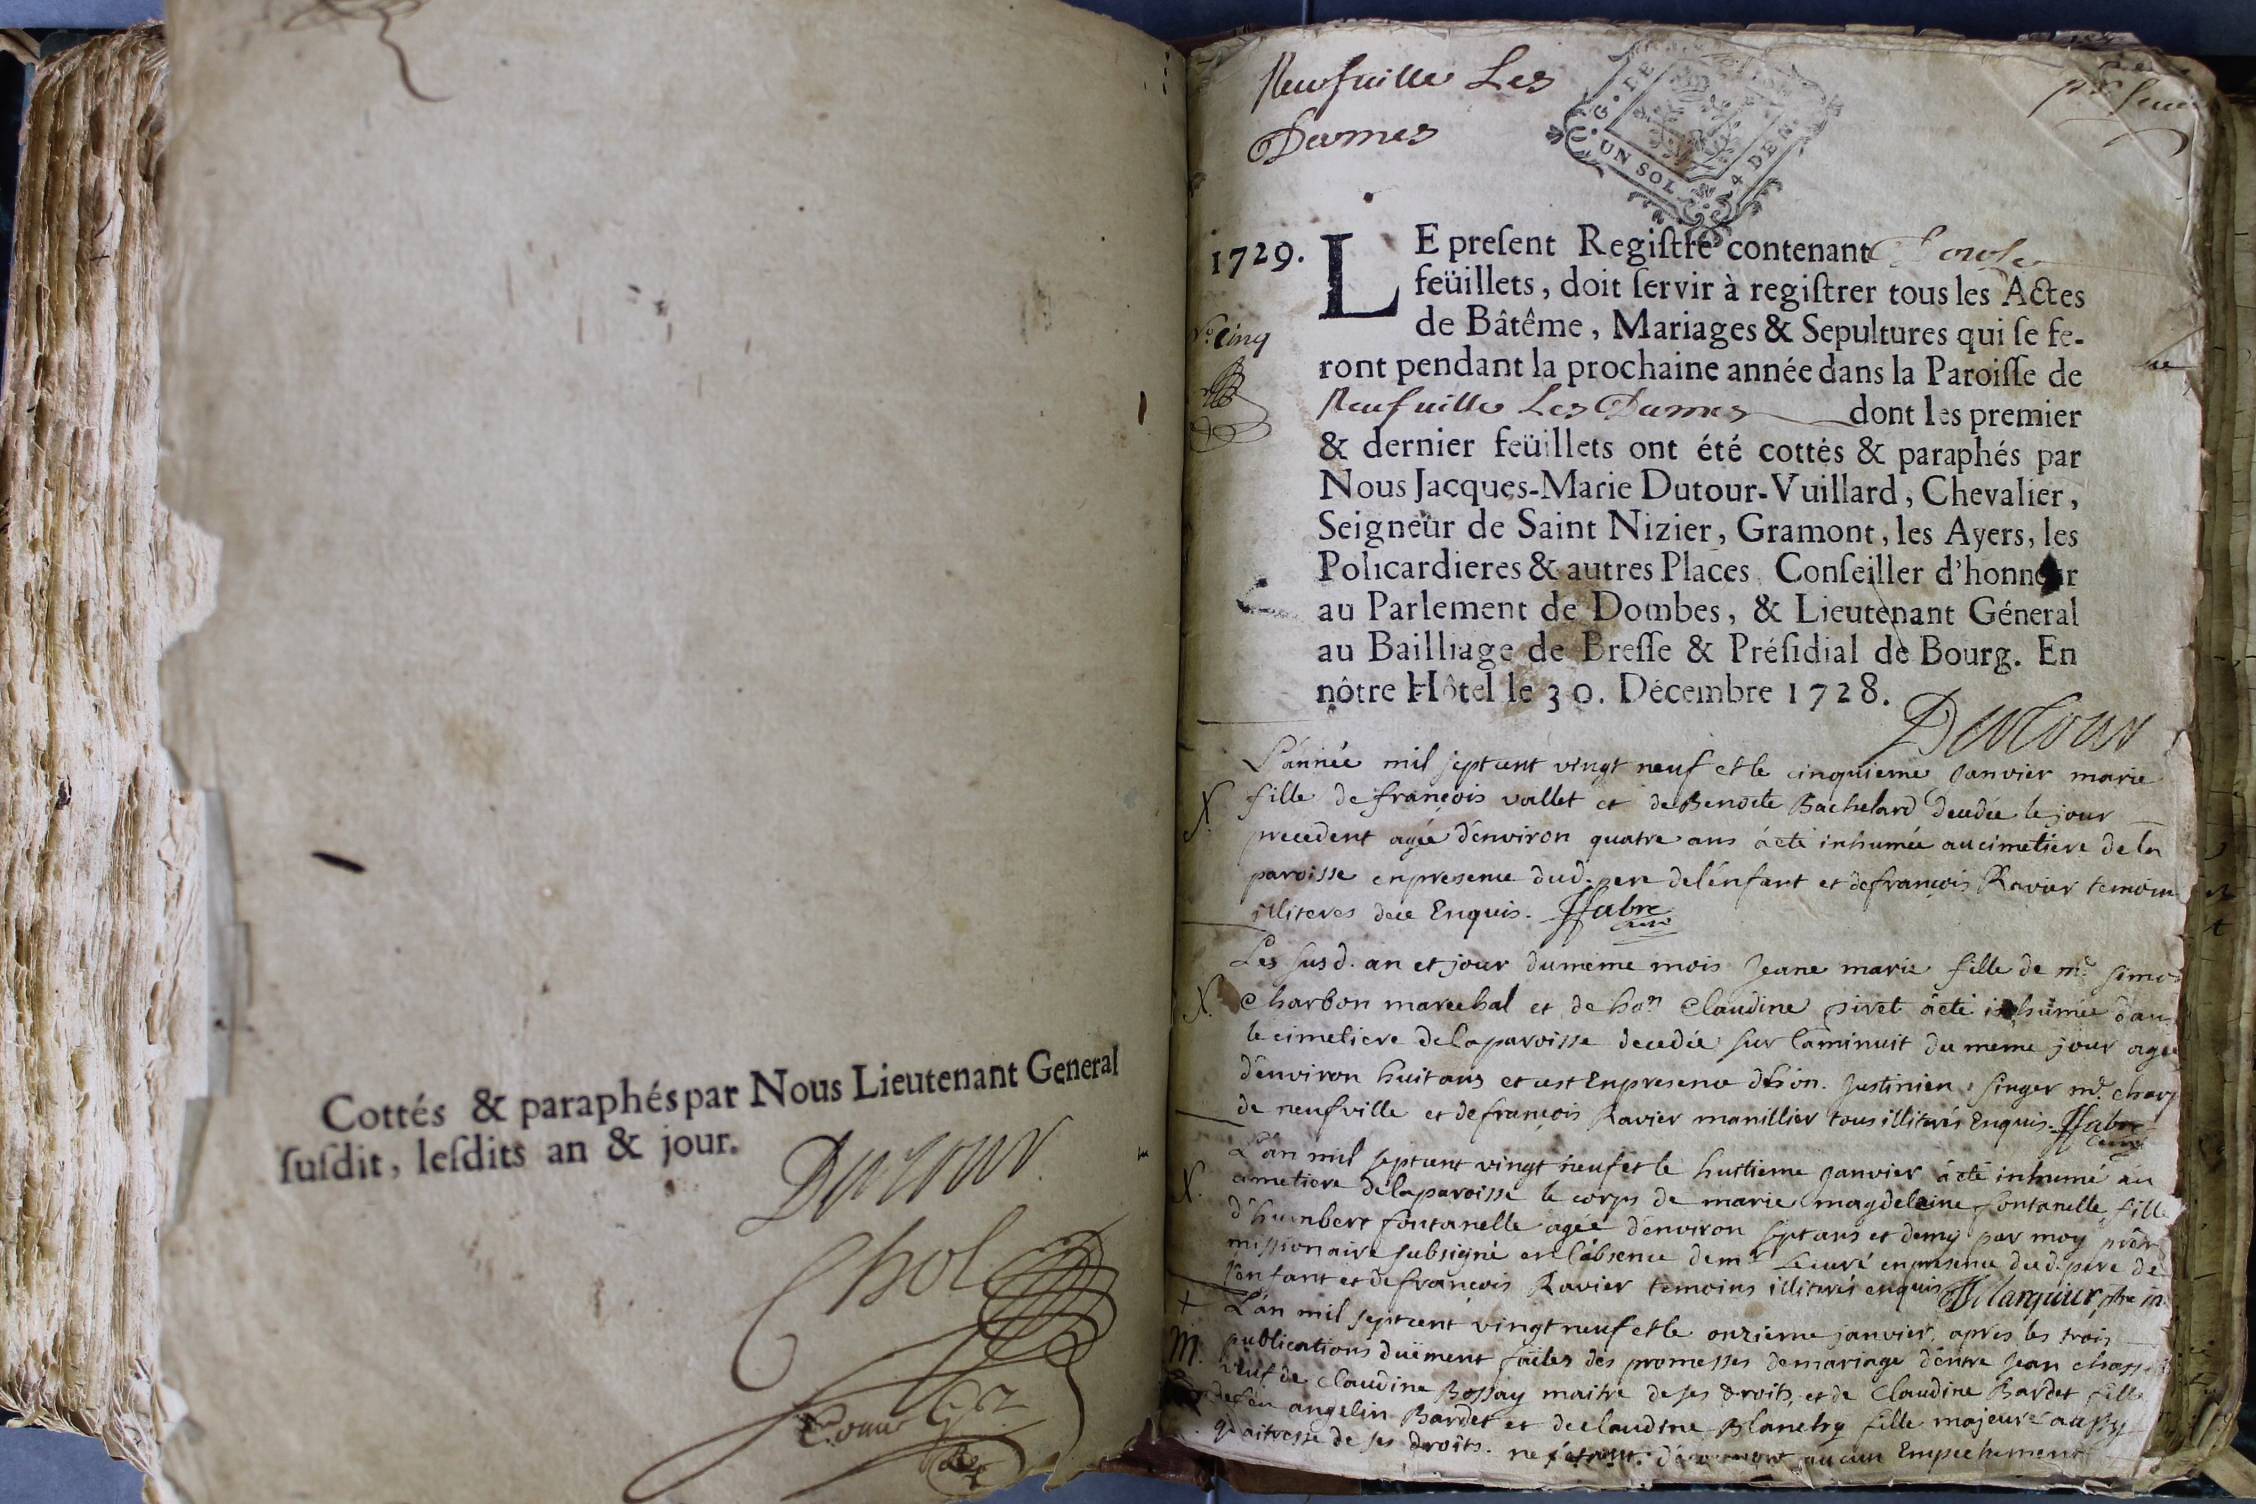 Cottés & paraphés par Nous Lieutenant General
ſuſdit, leſdits an & jour.
Dutour
Chol
Neufuille Les
Dames
G. DE
UN SOL 4 DEN.
1729.
LE preſent Regiſtre contenant
feüillets, doit ſervir à regiſtrer tous les Actes
de Bâtême, Mariages & Sepultures qui ſe fe-
ront pendant la prochaine année dans la Paroiſſe de
Neufuille Les Dames dont les premier
& dernier feüillets ont été cottés & paraphés par
Nous Jacques-Marie Dutour-Vuillard, Chevalier,
Seigneur de Saint Nizier, Gramont, les Ayers, les
Policardieres & autres Places, Conſeiller d'honneur
au Parlement de Dombes, & Lieutenant Géneral
au Bailliage de Breſſe & Préſidial de Bourg. En
nôtre Hôtel le 30. Décembre 1728.
Dutour
L'année mil septcent vingt neuf et le cinquieme Janvier marie
fille de françois vallet et de Benoite Bachelard decedée le jour
precedent agée d'environ quatre ans à eté inhumée au cimetiere de la
paroisse en presence dud. pere de l'enfant et de françois Ravier temoins
illiteres de ce Enquis. Ffabre curé
Les susd. an et jour du meme mois Jeane marie fille de mr. simon
Charbon marechal et de hon. Claudine pivet à eté inhumée dans
le cimetiere de la paroisse decedée sur la minuit du meme jour agée
d'environ huit ans et c'est En presence d'hon. Justinien singer md. char
de neufville et de françois Ravier manillier tous illiterés Enquis. Ffabre curé
L'an mil septcent vingt neuf et le huitieme Janvier à eté inhumé au
cimetiere de la paroisse le corps de marie magdeleine fontanelle fille
d'humbert fontanelle agée d'environ sept ans et demy par moy prêtre
missionaire subsigné en l'absence de mr. le curé en presence dud. pere de
l'enfant et de françois Ravier temoins illiterés enquis
L'an mil septcent vingt neuf et le onzieme janvier, apres les trois
publications duëment faites des promesses de mariage d'entre Jean
veuf de Claudine Bossay maitre de ses droits, et de Claudine Bardet fille
de feu angelin Bardet et de claudine Blanchy fille majeure aussy
maitresse de ses droits. aucun Empechement